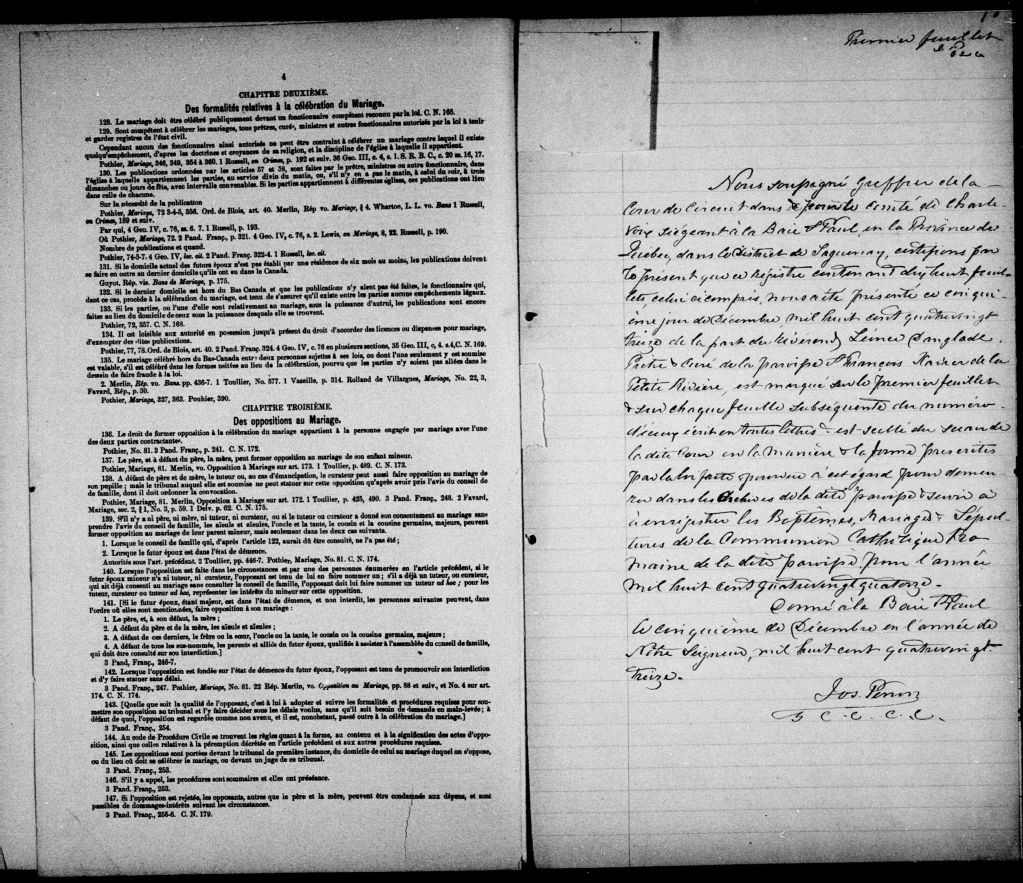 4
CHAPITRE DEUXIÈME.
Des formalités relatives à la célébration du Mariage.
128. Le mariage doit être célébré publiquement devant un fonctionnaire compétent reconnu par la loi. C. N. 165.
129. Sont compétent à célébrer les mariages, tous prêtres, curés, ministres et autres fonctionnaires autorisés par la loi à tenir
et garder registres de l'état civil.
Cependant aucun des fonctionnaires ainsi autorisés ne peut être contraint à célébrer un mariage contre lequel il existe
quelqu'empêchement, d'après les doctrines et croyances de sa religion, et la discipline de l'église à laquelle il appartient.
Pothier, Mariage, 346, 349, 354 à 360. 1 Russell, on Crimes, p. 192 et suiv. 36 Geo. III, c. 4, s. 1. S. R. B. C., c. 20 ss. 16, 17.
130. Les publications ordonnées par les articles 57 et 58, sont faites par le prêtre, ministre ou autre fonctionnaire, dans
l'église à laquelle appartiennent les parties, au service divin du matin, ou, s'il n'y en a pas le matin, à celui du soir, à trois
dimanches ou jours de fête, avec intervalle convenables. Si les parties appartiennent à différentes églises, ces publications ont lieu
dans celle de chacune.
Sur la nécessité de la publication
Pothier, Mariage, 72 3-4-5, 356. Ord. de Blois, art. 40. Merlin, Rép vo. Mariage, § 4. Wharton, L. L. vo. Bans 1 Russell,
on Crimes, 189 et suiv.
Par qui, 4 Geo. IV, c. 76, ss. 6. 7. 1 Russell, p. 193.
Où Pothier, Mariage, 72. 2 Pand. Franç., p. 321. 4 Geo. IV, c. 76, s. 2. Lewis, on Mariage, 8, 22. Russell, p. 190.
Nombre de publications et quand.
Pothier, 74-5-7. 4 Geo. IV, loc. cit. 2 Pand. Franç. 322-4. 1 Russell, loc. cit.
131. Si le domicile actuel des futurs époux n'est pas établi par une résidence de six mois au moins, les publications doivent
se faire en outre au dernier domicile qu'ils ont eu dans le Canada.
Guyot, Rép. vis. Bans de Mariage, p. 175.
132. Si le dernier domicile est hors du Bas Canada et que les publications n'y aient pas été faites, le fonctionnaire qui,
dans ce cas, procède à la célébration du mariage, est tenu de s'assurer qu'il existe entre les parties aucuns empêchements légaux.
133. Si les parties, ou l'une d'elle sont relativement au mariage, sous la puissance d'autrui, les publications sont encore
faites au lieu du domicile de ceux sous la puissance desquels elle se trouvent.
Pothier, 72, 357. C. N. 168.
134. Il est loisible aux autorité en possession jusqu'à présent du droit d'accorder des licences ou dispenses pour mariage,
d'exempter des dites publications.
Pothier, 77, 78. Ord. de Blois, art. 40. 2 Pand. Franç. 324. 4 Geo. IV, c. 76 en plusieurs sections, 35 Geo. III, c. 4. s 4, C. N. 169.
135. Le mariage célébré hors du Bas-Canada entre deux personnes sujettes à ses lois, ou dont l'une seulement y est soumise
est valable, s'il est célébré dans les formes usitées au lieu de la célébration, pourvu que les parties n'y soient pas allées dans le
dessein de faire fraude à la loi.
2. Merlin, Rép. vo. Bans. pp. 436-7. 1 Toullier, No. 577. 1 Vazeille, p. 314. Rolland de Villargues, Mariage, No. 22, 3,
Favard, Rép., p. 30.
Pothier, Mariage, 327, 363. Pouhier, 390.
CHAPITRE TROISIÈME.
Des oppositions au Mariage.
136. Le droit de former opposition à la célébration du mariage appartient à la personne engagée par mariage avec l'une
des deux parties contractantes.
Pothier, No. 81. 3 Pand. Franç., p. 241. C. N. 172.
137. Le père, et à défaut du père, la mère, peut former opposition au mariage de son enfant mineur.
Pothier, Mariage, 81. Merlin, vo. Opposition à Mariage sur art. 173. 1 Toullier, p. 489. C. N. 173.
138. A défaut de père et de mère, le tuteur ou, au cas d'émancipation, le curateur peut aussi faire opposition au mariage de
son pupille; mais le tribunal auquel elle est soumise ne peut statuer sur cette opposition qu'après avoir pris l'avis du conseil de
de famille, dont il doit ordonner la convocation.
Pothier, Mariage, 81. Merlin, Opposition à Mariage sur art. 172. 1 Toullier, p. 425, 490. 3 Pand. Franç., 248. 2 Favard,
Mariage, sec. 2, § 1, No. 3, p. 59. 1 Delv. p. 62. C. N. 175.
139. S'il n'y a ni père, ni mère, ni tuteur, ni curateur, ou si le tuteur ou curateur a donné son consentement au mariage sans
prendre l'avis du conseil de famille, les aïeuls et aïeules, l'oncle et la tante, le cousin et la cousine germains, majeurs, peuvent
former opposition au mariage de leur parent mineur, mais seulement dans les deux cas suivants.
1. Lorsque le conseil de famille qui, d'après l'article 122, aurait dû être consulté, ne l'a pas été;
2. Lorsque le futur époux est dans l'état de démence.
Autorités sous l'art. précédent. 2 Toullier, pp. 446-7. Pothier, Mariage, No. 81. C. N. 174.
140. Lorsque l'opposition est faite dans les circonstances et par une des personnes énumérées en l'article précédent, si le
futur époux mineur n'a ni tuteur, ni curateur, l'opposant est tenu de lui en faire nommer un; s'il a déjà un tuteur, ou curateur,
qui ait déjà consenti au mariage sans consulter le conseil de famille, l'opposant doit lui faire nommer un tuteur ad hoc; pour les
tuteur, curateur ou tuteur ad hoc, représenter les intérêts du mineur sur cette opposition.
141. [Si le futur époux, étant majeur, est dans l'état de démence, et non interdit, les personnes suivantes peuvent, dans
l'ordre où elles sont mentionnées, faire opposition à son mariage :
1. Le père; et, à son défaut, la mère;
2. A défaut du père et de la mère, les aïeuls et aïeules;
3. A défaut de ces derniers, le frère ou la sœur, l'oncle ou la tante, le cousin ou la cousine germains, majeurs;
4. A défaut de tous les sus-nommés, les parents et alliés du futur époux, qualifiés à assister à l'assemblée du conseil de famille,
qui doit être consulté sur son interdiction.]
3 Pand, Franç., 246-7.
142. Lorsque l'opposition est fondée sur l'état de démence du futur époux, l'opposant est tenu de promouvoir son interdiction
et d'y faire statuer sans délai.
3 Pand. Franç., 247. Pothier, Mariage, No. 81. 22 Rép. Merlin, vo. Opposition au Mariage, pp. 88 et suiv., et No. 4 sur art.
174. C. N. 174.
143. [Quelque soit la qualité de l'opposant, c'est à lui à adopter et suivre les formalités et procédures requises pour sou-
mettre son opposition au tribunal et l'y faire décider sous les délais voulus, sans qu'il soit besoin de demande en main-levée; à
défaut de quoi, l'opposition est regardée comme non avenu, et il est, nonobstant, passé outre à la célébration du mariage.]
3 Pand. Franç., 254.
144. Au code de Procédure Civile se trouvent les règles quant à la forme, au contenu et à la signification des actes d'oppo-
sition, ainsi que celles relatives à la péremption décrétée en l'article précédent et aux autres procédures requises.
145. Les oppositions sont portées devant le tribunal de première instance, du domicile de celui au mariage duquel on s'oppose,
ou du lieu où doit se célébrer le mariage, ou devant un juge de ce tribunal.
3 Pand. Franç., 253.
146. S'il y a appel, les procédures sont sommaires et elles ont préséance.
3 Pand. Franç., 253.
147. Si l'opposition est rejetée, les opposants, autres que le père et la mère, peuvent être condamnés aux dépens, et sont
passibles de dommages-intérêts suivant les circonstances.
3 Pand. Franç., 255-6. C. N. 179.
Premier feuillet
Nous soussigné Greffier de la
Cour de Circuit dans & pour le Comté de Charle-
voix siégeant à la Baie St Paul, en la Province de
Québec, dans le District de Saguenay, certifions par
le présent que ce Registre contenant dix huit feuil-
lets celui ci compris, nous a été présenté ce cinqui-
ème jour de Décembre, mil huit cent quatrevingt
treize de la part du Révérend Léonce Danglade.
Prêtre & Curé de la paroisse St François Xavier de la
Petite Rivière, est marqué sur le premier feuillet
& sur chaque feuille subséquente du numéro
d'iceux écrit en toutes lettres & est scellé du sceau de
la dite Cour en la manière & la forme prescrites
par la loi faite & pourvue à cet égard pour demeu-
rer dans les Archives de la dite paroisse & servir à
à enregistrer les Baptêmes, Mariages & Sépul-
tures de la Communion Catholique Ro-
maine de la dite paroisse pour l'année
mil huit cent quatrevingt quatorze.
Donné à la Baie St Paul
le cinquième de Décembre en l'année de
Notre Seigneur, mil huit cent quatrevingt
treize.
Jos. Perron
G. C. C. C. C.